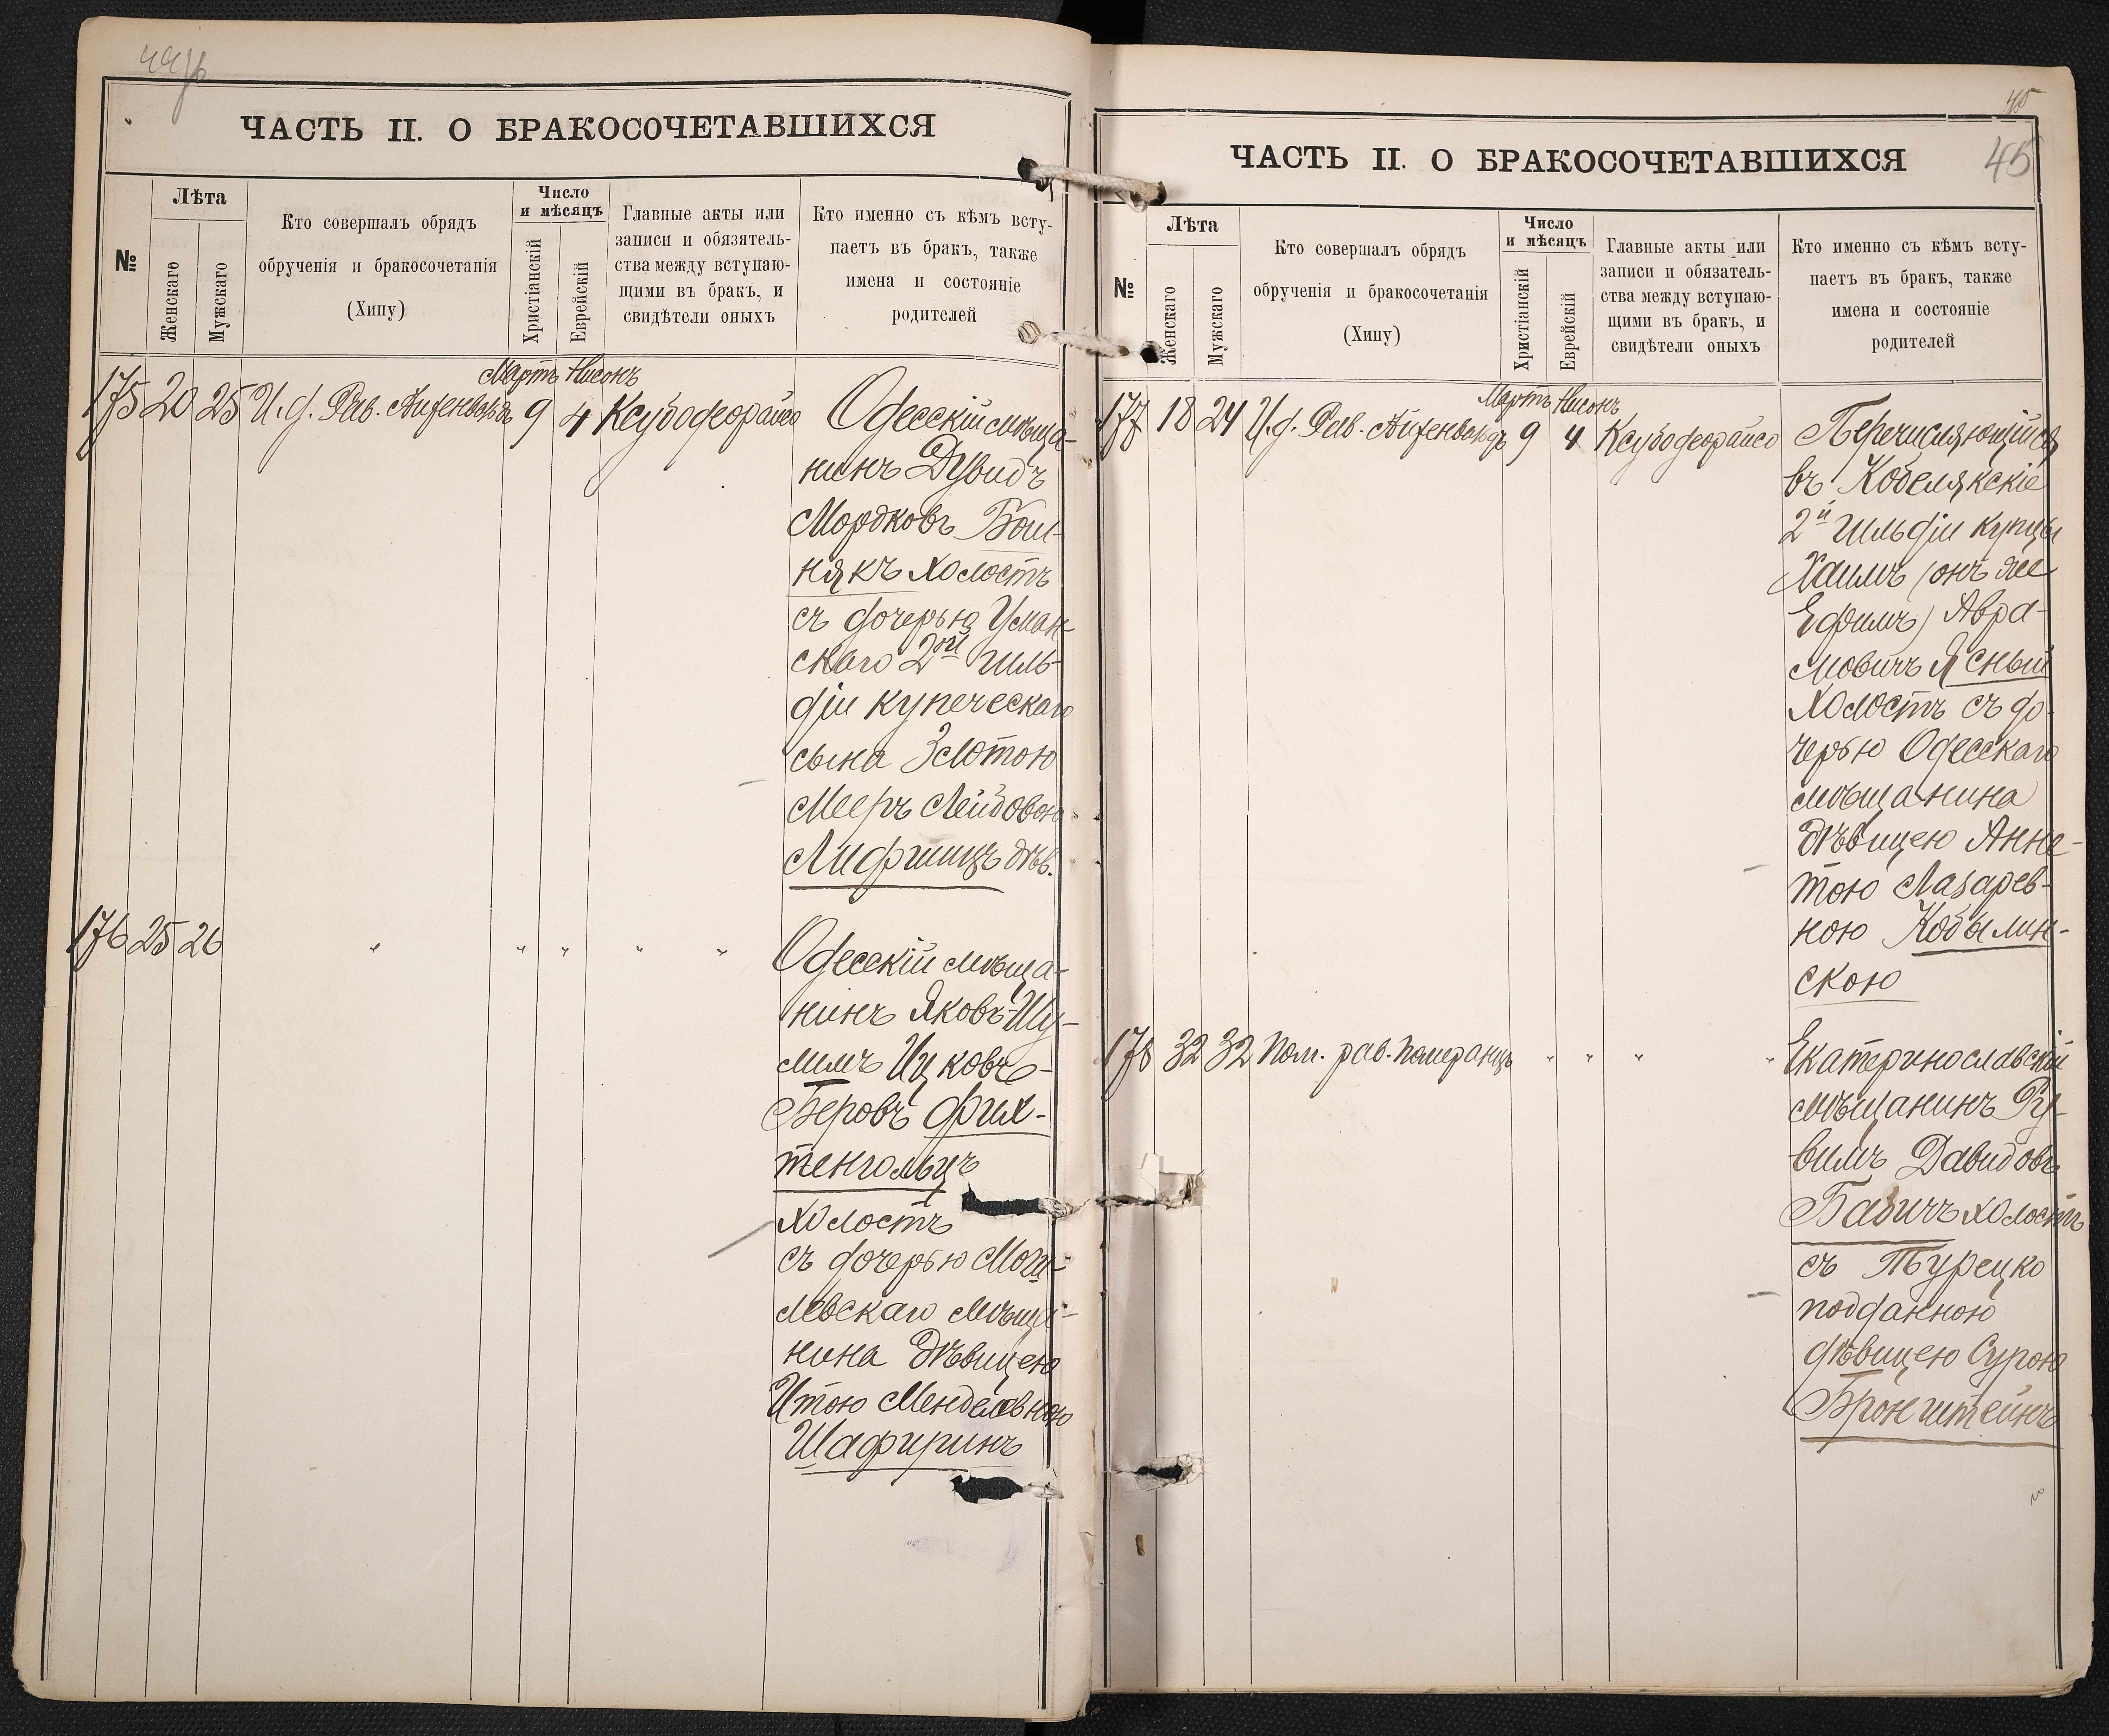 ЧАСТЬ II. О БРАКОСОЧЕТАВШИХСЯ
№
Лѣта
Женскаго
Мужскаго
Кто совершалъ обрядъ
обрученія и бракосочетанія
(Хипу)
Число
и мѣсяцъ
Христіанскій
Еврейскій
Главные акты или
записи и обязятель-
ства между вступаю-
щими въ бракъ, и
свидѣтели оныхъ
Кто именно съ кѣмъ всту-
паетъ въ бракъ, также
имена и состояніе
родителей
Мартъ Нисонъ
175 20 25 И.д. Рав. Айзенвольдъ 9 4 Ксубодеорайсо
Одесскій мѣща-
нинъ Дувидъ
Мордковъ Бош-
някъ холостъ
съ дочерью Уман-
скаго 2ой гиль-
діи купеческаго
сына Златою
Мееръ Лейбовою
Лифшицъ дѣв.
176 25 26 " " " " "
Одесскій мѣща-
нинъ Яковъ-Шу-
лимъ Ицковъ-
Беровъ Фих-
тенгольцъ
холостъ
съ дочерью Моги-
левскаго мѣща-
нина дѣвицею
Итою Менделевною
Шафиринъ
45
45
ЧАСТЬ II. О БРАКОСОЧЕТАВШИХСЯ
№
Лѣта
Женскаго
Мужскаго
Кто совершалъ обрядъ
обрученія и бракосочетанія
(Хипу)
Число
и мѣсяцъ
Христіанскій
Еврейскій
Главные акты или
записи и обязатель-
ства между вступаю-
щими въ бракъ, и
свидѣтели оныхъ
Кто именно съ кѣмъ всту-
паетъ въ бракъ, также
имена и состояніе
родителей
Мартъ Нисонъ
177 18 24 И.д. Рав. Айзенвольдъ 9 4 Ксубодеорайсо
Перечисляющійся
въ Кобелякскіе
2й гильдіи купцы
Хаимъ (онъ же
Ефимъ) Абра-
мовичъ Ясный
холостъ съ до-
черью Одесскаго
мѣщанина
дѣвицею Анне-
тою Лазарев-
ною Кобылин-
скою
178 32 32 Пом. рав. Померанцъ " " " "
Екатеринославскій
мѣщанинъ Ру-
вимъ Давидовъ
Бабичъ холостъ
съ Турецко
подданною
дѣвицею Сурою
Бронштейнъ